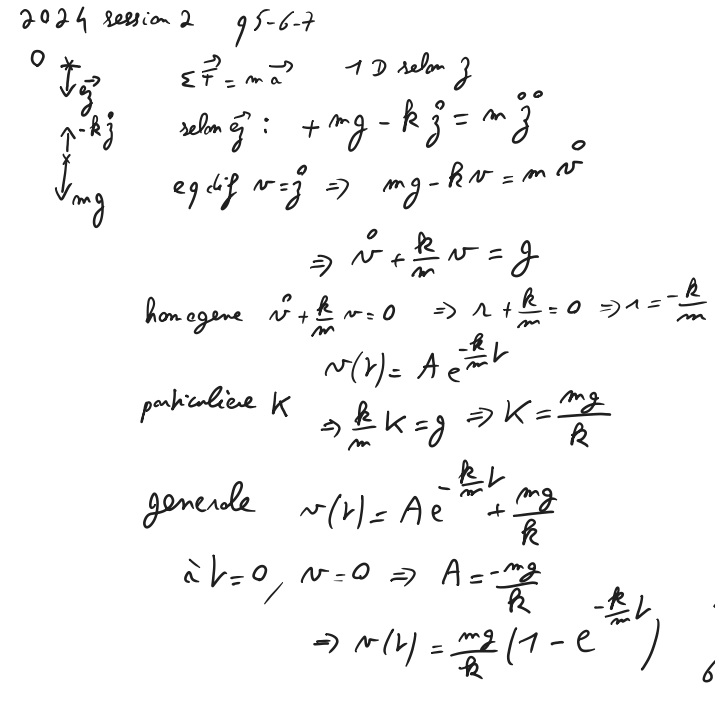 2024 session 2 q5-6-7
O
e⃗z
ΣF⃗ = m a⃗ 1D selon z
-kż
selon e⃗z : + mg - kż = m z̈
mg
eq dif v = ż ⇒ mg - kv = m v̇
⇒ v̇ + k/m v = g
homogene v̇ + k/m v = 0 ⇒ r + k/m = 0 ⇒ r = -k/m
v(t) = A e^(-k/m t)
particulière K ⇒ k/m K = g ⇒ K = mg/k
generale v(t) = A e^(-k/m t) + mg/k
à t=0, v=0 ⇒ A = -mg/k
⇒ v(t) = mg/k (1 - e^(-k/m t))